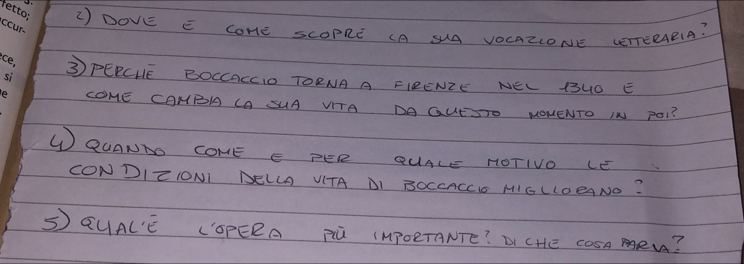 fetto;
ccur-
ce,
si
e
2) DOVE E COME SCOPRE LA SUA VOCAZIONE LETTERARIA?
3) PERCHÈ BOCCACCIO TORNA A FIRENZE NEL 1340 E
COME CAMBIA LA SUA VITA DA QUESTO MOMENTO IN POI?
4) QUANDO COME E PER QUALE MOTIVO LE
CONDIZIONI DELLA VITA DI BOCCACCIO MIGLIORANO?
5) QUAL'È L'OPERA PIÙ IMPORTANTE? DI CHE COSA PARLA?